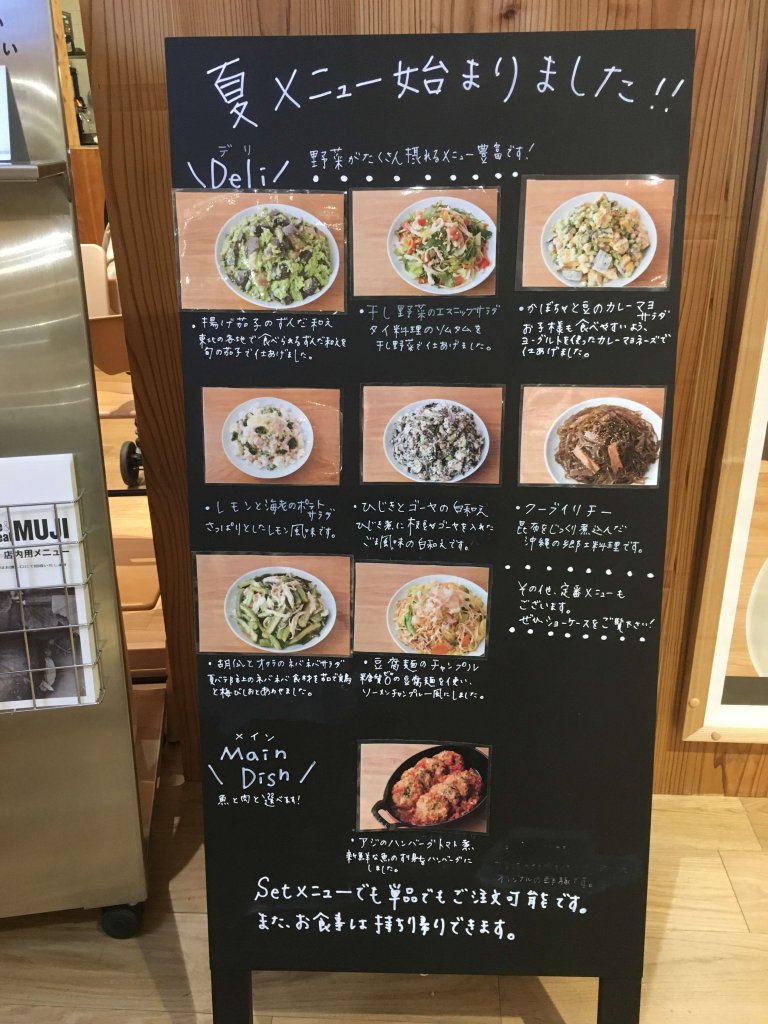 夏メニュー始まりました!!
デリ
\Deli/
野菜がたくさん摂れるメニュー豊富です!
・揚げ茄子のずんだ和え
東北の各地で食べられるずんだ和えを
旬の茄子で仕あげました。
・干し野菜のエスニックサラダ
タイ料理のソムタムを
干し野菜で仕あげました。
・かぼちゃと豆のカレーマヨ
サラダ
お子様も食べやすいよう、
ヨーグルトを使ったカレーマヨネーズで
仕あげました。
・レモンと海老のポテト
サラダ
さっぱりとしたレモン風味です。
・ひじきとゴーヤの白和え
ひじき煮に枝豆やゴーヤを入れた
ごま風味の白和えです。
・クーブイリチー
昆布をじっくり煮込んだ
沖縄の郷土料理です。
その他、定番メニューも
ございます。
ぜひ、ショーケースをご覧下さい!
・胡瓜とオクラのネバネバサラダ
夏バテ防止のネバネバ食材を茹で鶏
と梅びしおとあわせました。
・豆腐麺のチャンプル
糖質0の豆腐麺を使い、
ソーメンチャンプルー風にしました。
メイン
\Main
Dish/
魚と肉と選べます!
・アジのハンバーグトマト煮
新鮮な魚の
ハンバーグに
しました。
Setメニューでも単品でもご注文可能です。
また、お食事は持ち帰りできます。
MUJI
店内用メニュー